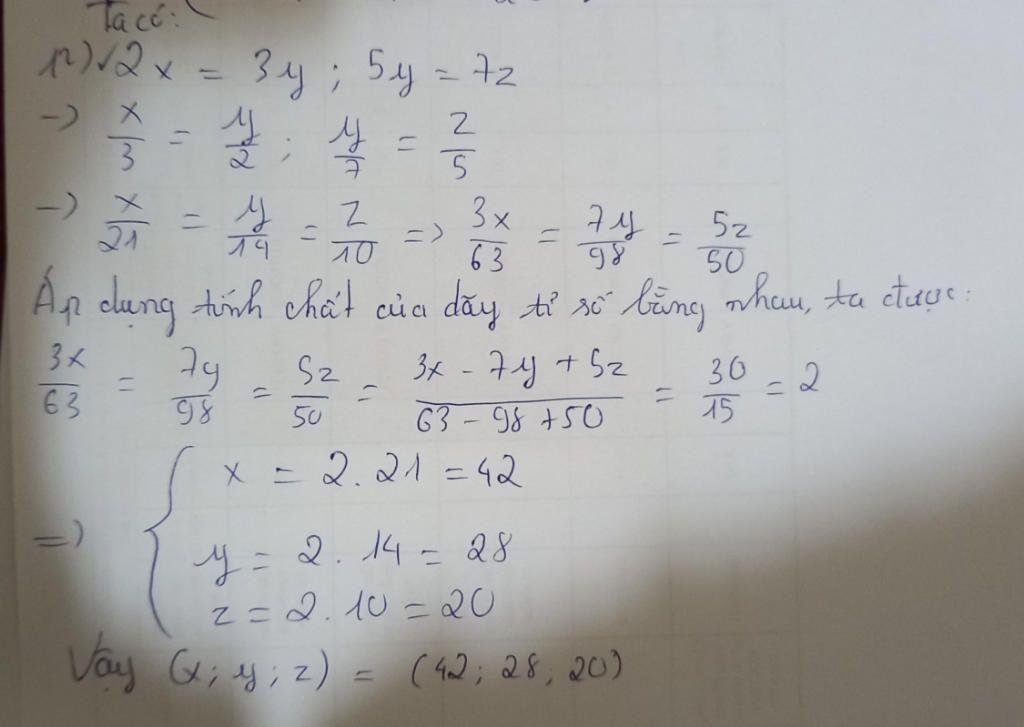 Ta có:
n) 2x = 3y ; 5y = 7z
→ x/3 = y/2 ; y/7 = z/5
→ x/21 = y/14 = z/10 => 3x/63 = 7y/98 = 5z/50
Áp dụng tính chất của dãy tỉ số bằng nhau, ta được:
3x/63 = 7y/98 = 5z/50 = (3x - 7y + 5z)/(63 - 98 + 50) = 30/15 = 2
=> { x = 2.21 = 42
y = 2.14 = 28
z = 2.10 = 20
Vậy (x; y; z) = (42; 28; 20)